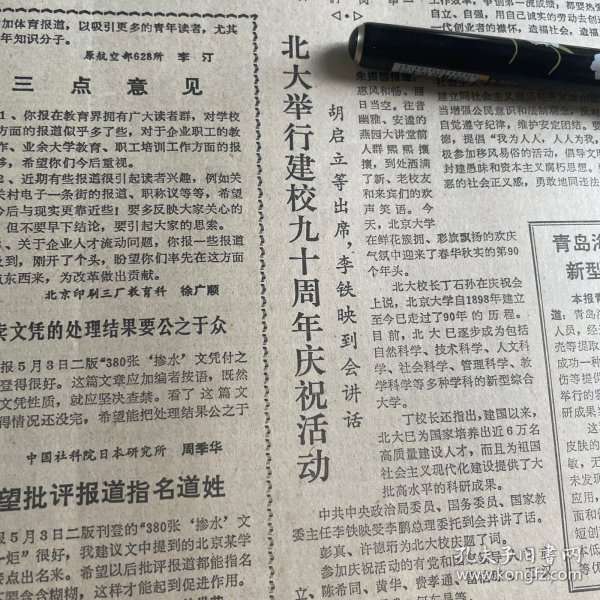 加体育报道，以吸引更多的青年读者，尤其
年知识分子。
原航空部628所 李汀
三点意见
1、你报在教育界拥有广大读者群，对学校
方面的报道似乎多了些，对于企业职工的教
作、业余大学教育、职工培训工作方面的报
够，希望你们今后重视。
2、近期有些报道很引起读者兴趣，例如关
关村电子一条街的报道、职称议等等，希望
今后与现实更靠近些！要多反映大家关心的
但不要早下结论，要引起大家的思索。
、关于企业人才流动问题，你报一些报道
及到，刚开了个头，盼望你们率先在这方面
点东西来，为改革做出贡献。
北京印刷三厂教育科 徐广顺
卖文凭的处理结果要公之于众
报5月3日二版“380张‘掺水’文凭付之
登得很好。这篇文章应加编者按语，既然
文凭性质，就应坚决查禁。看了这篇文
得情况还没完，希望能把处理结果公之于
中国社科院日本研究所 周季华
望批评报道指名道姓
报5月3日二版刊登的“380张‘掺水’文
一炬”很好，我建议文中提到的北京某学
点出名来。希望以后批评报道都能指名
要含含糊糊，这样才能起到促进作用。
北大举行建校九十周年庆祝活动
胡启立等出席，李铁映到会讲话
惠风和畅，丽
日当空。往昔
幽雅、安谧的
燕园大讲堂前
人群熙熙攘
攘，到处洒满
了新、老校友
和来宾们的欢
声笑语。今
天，北京大学
在鲜花簇拥、彩旗飘扬的欢庆
气氛中迎来了春华秋实的第90
个年头。
北大校长丁石孙在庆祝会
上说，北京大学自1898年建立
至今已走过了90年的历程。
目前，北大已逐步成为包括
自然科学、技术科学、人文科
学、社会科学、管理科学、教
学科学等多种学科的新型综合
大学。
丁校长还指出，建国以来，
北大已为国家培养出近6万名
高质量建设人才，而且为祖国
社会主义现代化建设提供了大
批高水平的科研成果。
中共中央政治局委员、国务委员、国家教
委主任李铁映受李鹏总理委托到会并讲了话。
彭真、许德珩为北大校庆题了词。
参加庆祝活动的有党和
立、陈希同、黄华、费孝通
自立、自强，用自己诚实的劳动去创
一代创业者的襟怀，造福社会，造福
当增强公民意识和法制观念，
自觉遵守纪律，维护安定团结。要
德，提倡“我为人人，人人为我”，
极参加移风易俗的活动，倡导文明
封建愚昧和资本主义腐朽思想，
恶的社会正义感，勇敢地同违法
青岛
新型
本报青
道：青岛
人员，经
壳等提取
成功一种
伤等提供
举行的
研成果
这
皮肤的
敏，无
未发现
应用，
面和
短创
等优
孔夫子旧书网